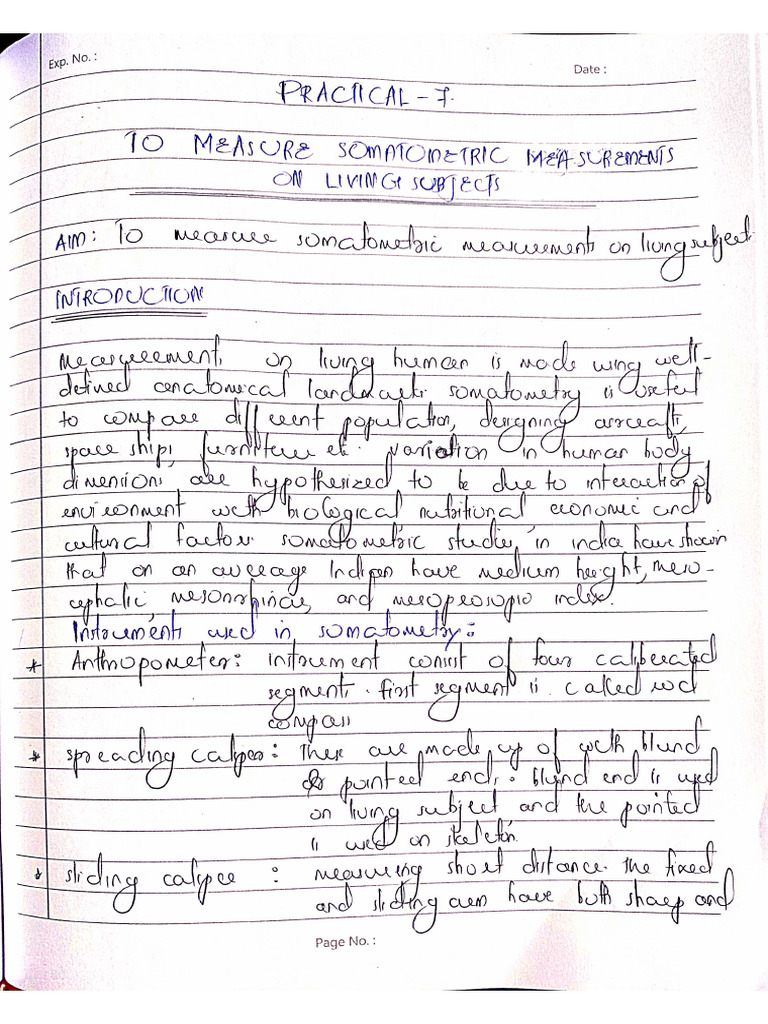 Exp. No. :
Date :
PRACTICAL - 7.
TO MEASURE SOMATOMETRIC MEASUREMENTS
ON LIVING SUBJECTS
AIM: To measure somatometric measurements on living subject.
INTRODUCTION
Measurements on living human is made using well-
defined anatomical landmarks. somatometry is useful
to compare different population, designing aircraft,
space ship, furniture etc. variation in human body
dimensions are hypothesized to be due to interaction of
environment with biological nutritional economic and
cultural factors. somatometric studies in india have shown
that on an average Indian have medium height, meso-
cephalic, mesorrhiniae, and mesoprosopic index.
Instruments used in somatometry:
* Anthropometer: instrument consist of four caliberated
segments. first segment is called rod
compass
* spreading caliper: There are made up of with blund
& pointed ends. blund end is used
on living subject and the pointed
is used on skeleton.
* sliding caliper : measuring short distance. The fixed
and sliding arm have both sharp and
Page No. :